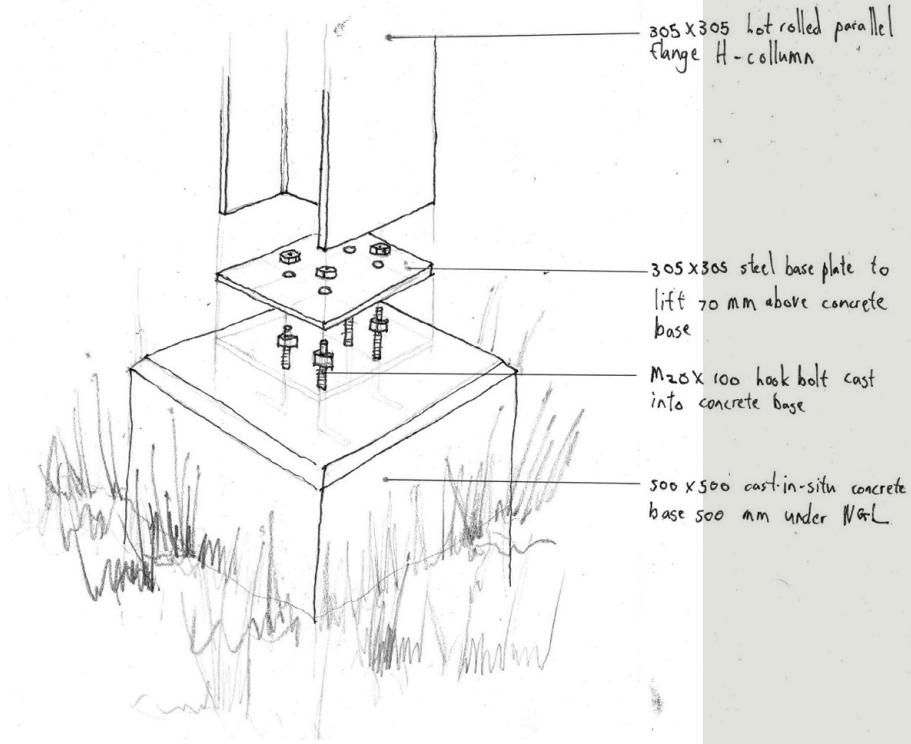 305 X 305 hot rolled parallel
flange H-collumn
305 X 305 steel base plate to
lift 70 mm above concrete
base
M20 X 100 hook bolt cast
into concrete base
500 X 500 cast-in-situ concrete
base 500 mm under NGL